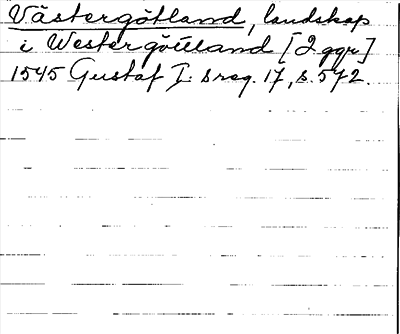 Västergötland, landskap
i Westergöttland [2 ggr]
1545 Gustaf I: s reg. 17, s. 572.